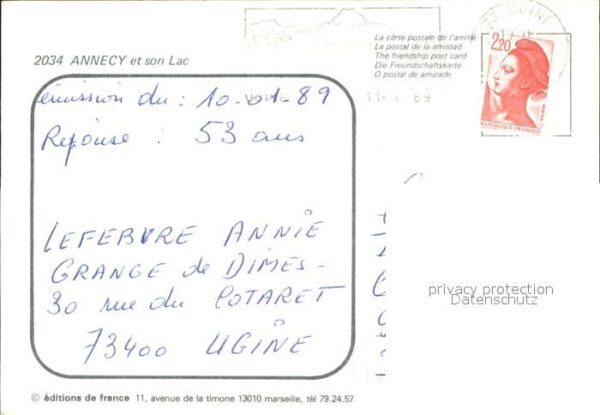 2034 ANNECY et son Lac
La carte postale de l'amitié
La postal de la amistad
The friendship post card
Die Freundschaftskarte
O postal de amizade
73 UGINE
11-1-89
2,20
REPUBLIQUE FRANÇAISE
émission du : 10-01-89
Réponse : 53 ans
LEFEBVRE ANNIE
GRANGE de DIMES -
30 rue du COTARET
73400 UGINE
privacy protection
Datenschutz
© éditions de france 11, avenue de la timone 13010 marseille, tél 79.24.57